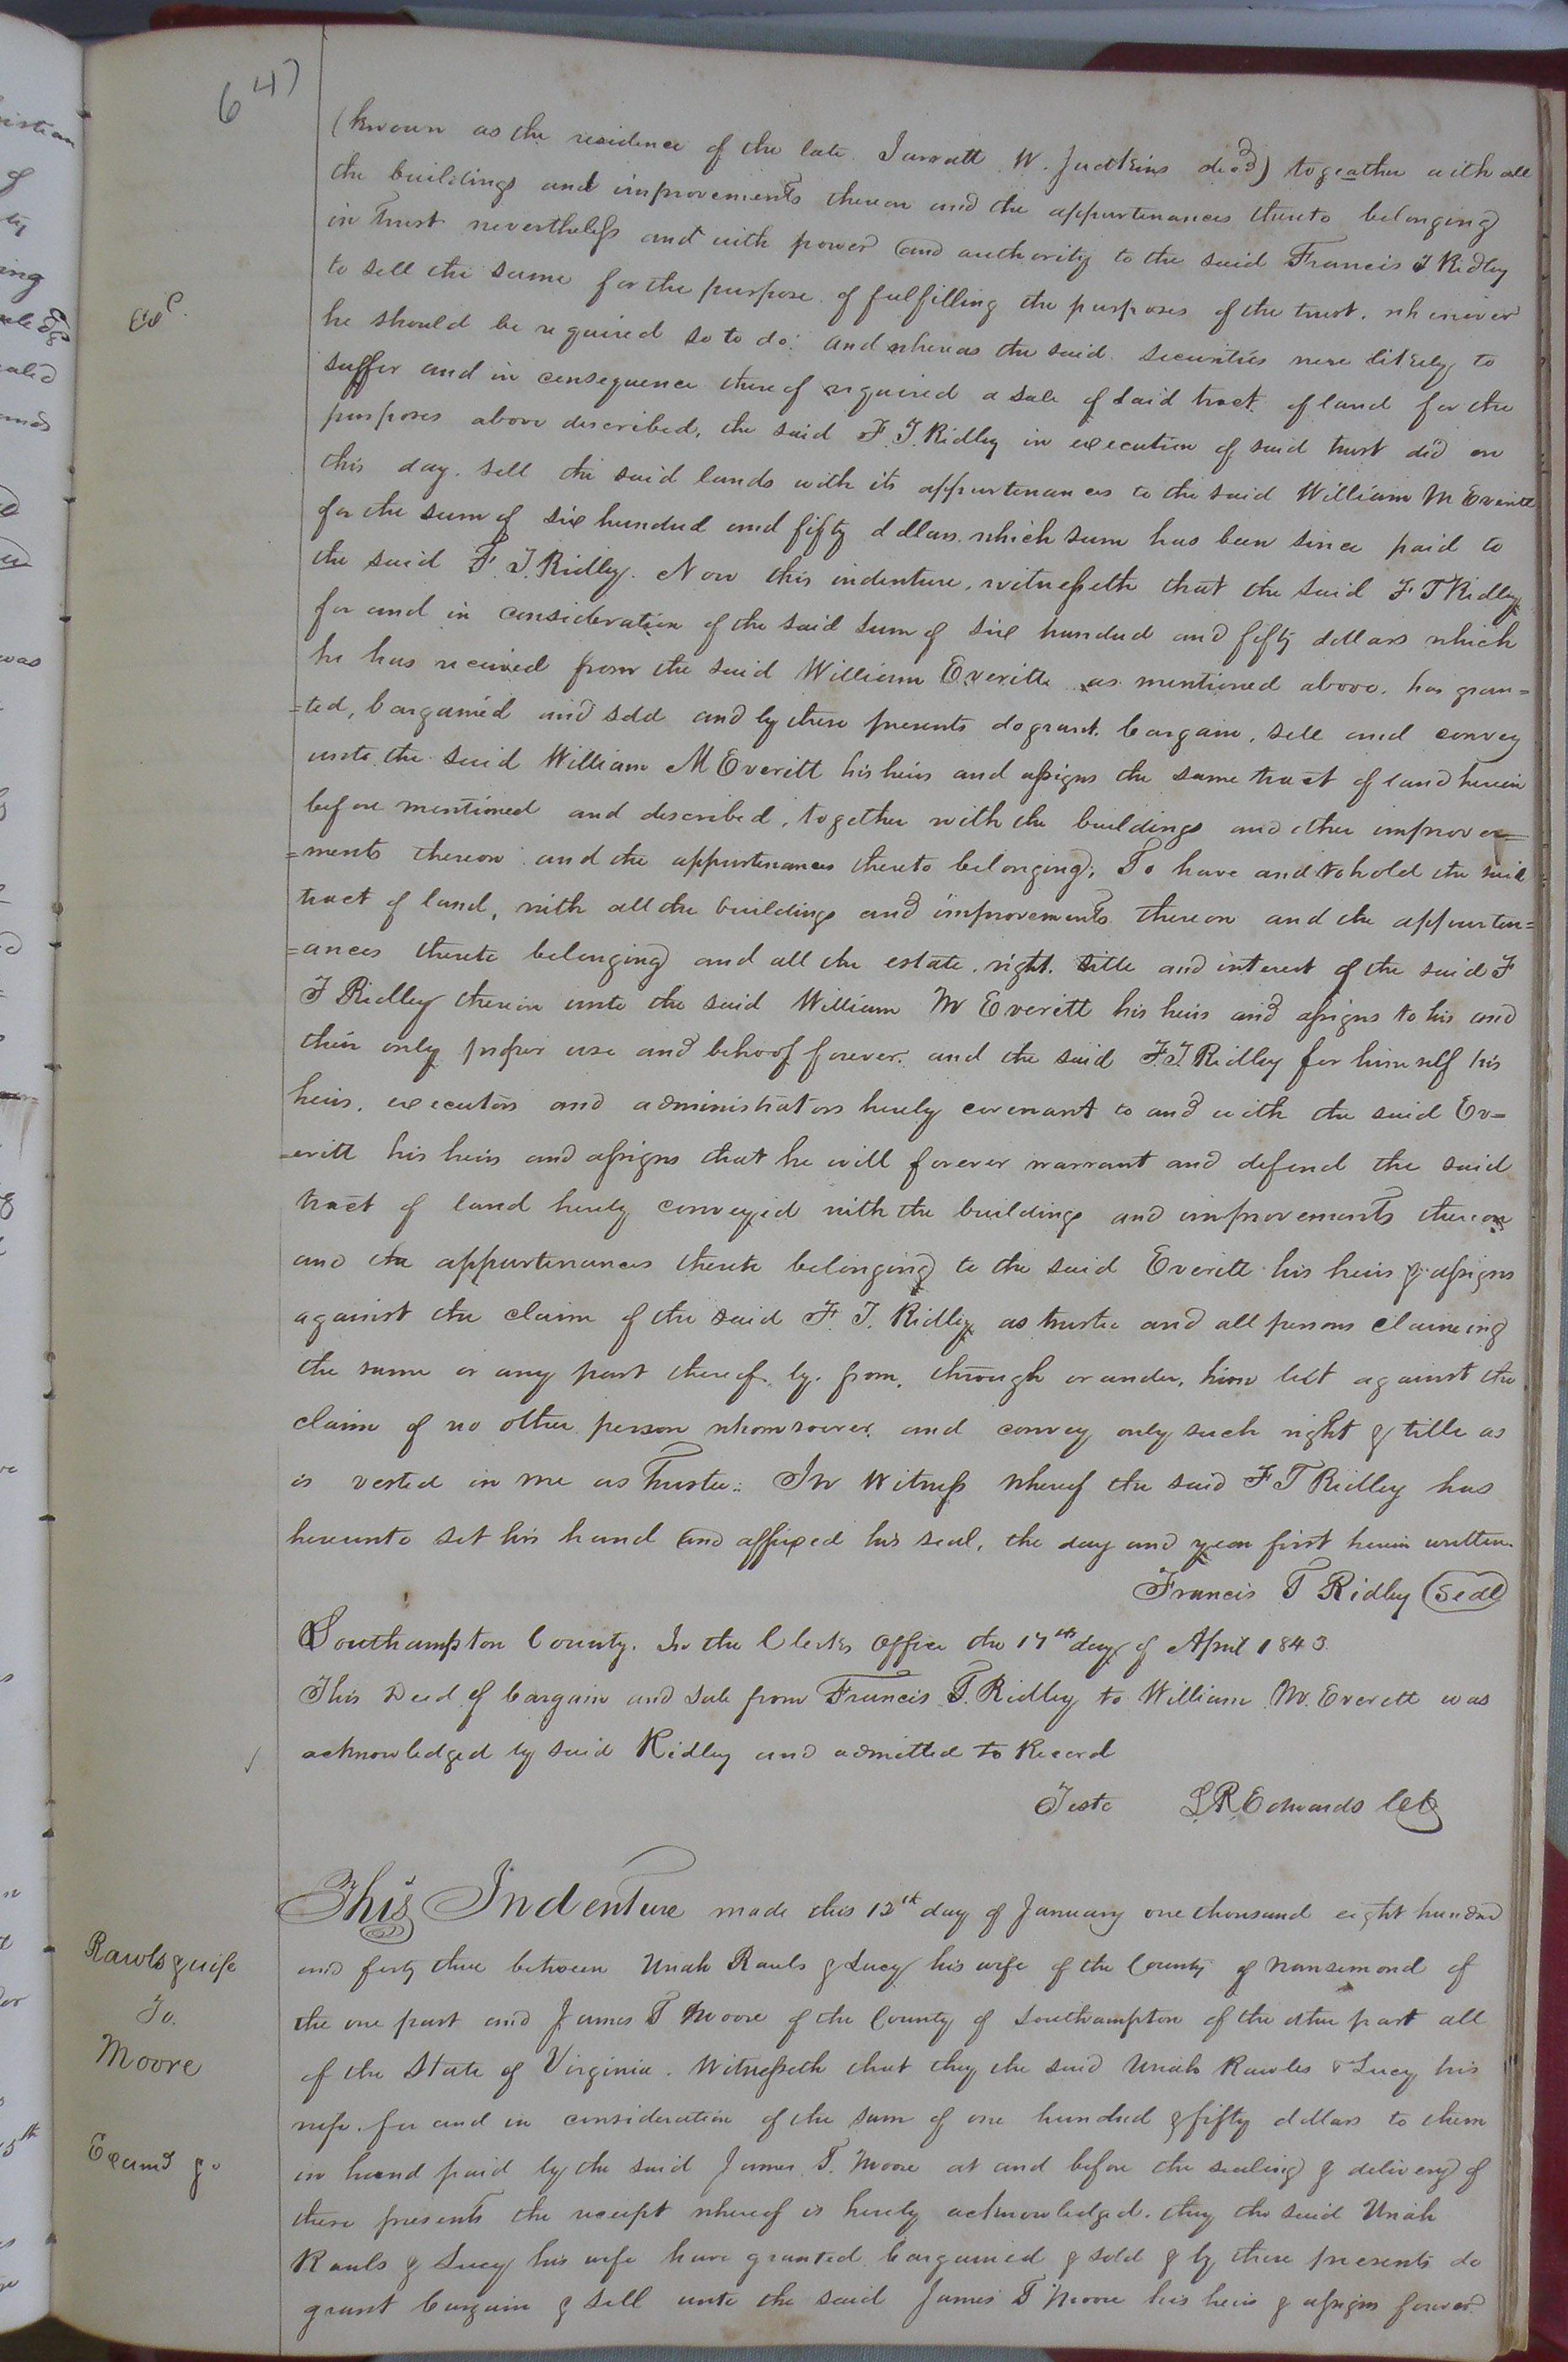 647
(known as the residence of the late Jarratt W. Judkins decd) togeather with all
the buildings and improvements thereon and the appurtenances thereto belonging
in Trust nevertheless and with power and authority to the said Francis T Ridley
to sell the same for the purpose of fulfilling the purposes of the trust. whenever
he should be required so to do: and whereas the said securities were likely to
suffer and in consequence thereof required a sale of said tract of land for the
purposes above described, the said F. T. Ridley in execution of said trust did on
this day sell the said lands with its appurtenances to the said William M Everitt
for the sum of six hundred and fifty dollars which sum has been since paid to
the said F. T. Ridley. Now this indenture, witnesseth that the said F T Ridley
for and in consideration of the said sum of six hundred and fifty dollars which
he has received from the said William Everitt as mentioned above. has gran=
=ted, bargained and sold and by these presents do grant. bargain, sell and convey
unto the said William M Everitt his heirs and assigns the same tract of land herein
before mentioned and described, together with the buildings and other improve=
=ments thereon and the appurtenances thereto belonging; To have and to hold the said
tract of land, with all the buildings and improvements thereon and the appurten=
=ances thereto belonging and all the estate, right. title and interest of the said F
T Ridley therein unto the said William M Everitt his heirs and assigns to his and
their only proper use and behoof forever. and the said F. T. Ridley for himself his
heirs, executors and administrators hereby covenant to and with the said Ev=
=eritt his heirs and assigns that he will forever warrant and defend the said
tract of land hereby conveyed with the buildings and improvements thereon
and the appurtenances thereto belonging to the said Everitt his heirs & assigns
against the claim of the said F. T. Ridley as trustee and all persons claiming
the same or any part thereof. by. from, through or under, him but against the
claim of no other person whomsoever and convey only such right & title as
is vested in me as Trustee: In Witness Whereof the said F T Ridley has
hereunto set his hand and affixed his seal, the day and year first herein written.
Francis T Ridley Seal
Southampton County. In the Clerks Office the 17th day of April 1843.
This Deed of bargain and sale from Francis T. Ridley to William M. Everett was
acknowledged by said Ridley and admitted to Record
Teste L. R. Edwards Clk
Rawls & wife
To.
Moore
Examd
This Indenture made this 12th day of January one thousand eight hundred
and forty three between Uriah Rawls & Lucy his wife of the County of Nansemond of
the one part and James T Moore of the County of Southampton of the other part all
of the State of Virginia. Witnesseth that they the said Uriah Rawles & Lucy his
wife. for and in consideration of the sum of one hundred & fifty dollars to them
in hand paid by the said James T. Moore at and before the sealing & delivery of
these presents the receipt whereof is hereby acknowledged. they the said Uriah
Rauls & Lucy his wife have granted bargained & sold & by these presents do
grant bargain & sell unto the said James T Moore his heirs & assigns forever